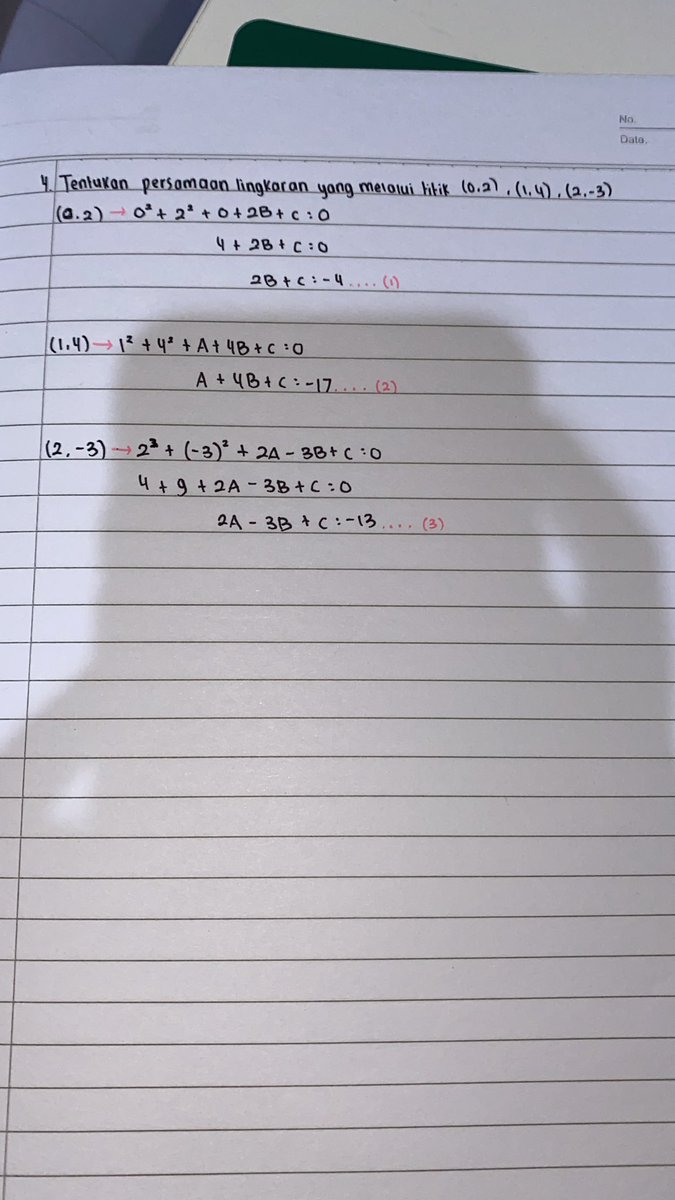 No.
Date.
4. Tentukan persamaan lingkaran yang melalui titik (0.2), (1,4), (2,-3)
(0.2) → 0² + 2² + 0 + 2B + C : 0
4 + 2B + C : 0
2B + C : -4 .... (1)
(1,4) → 1² + 4² + A + 4B + C : 0
A + 4B + C : -17 .... (2)
(2,-3) → 2² + (-3)² + 2A - 3B + C : 0
4 + 9 + 2A - 3B + C : 0
2A - 3B + C : -13 .... (3)